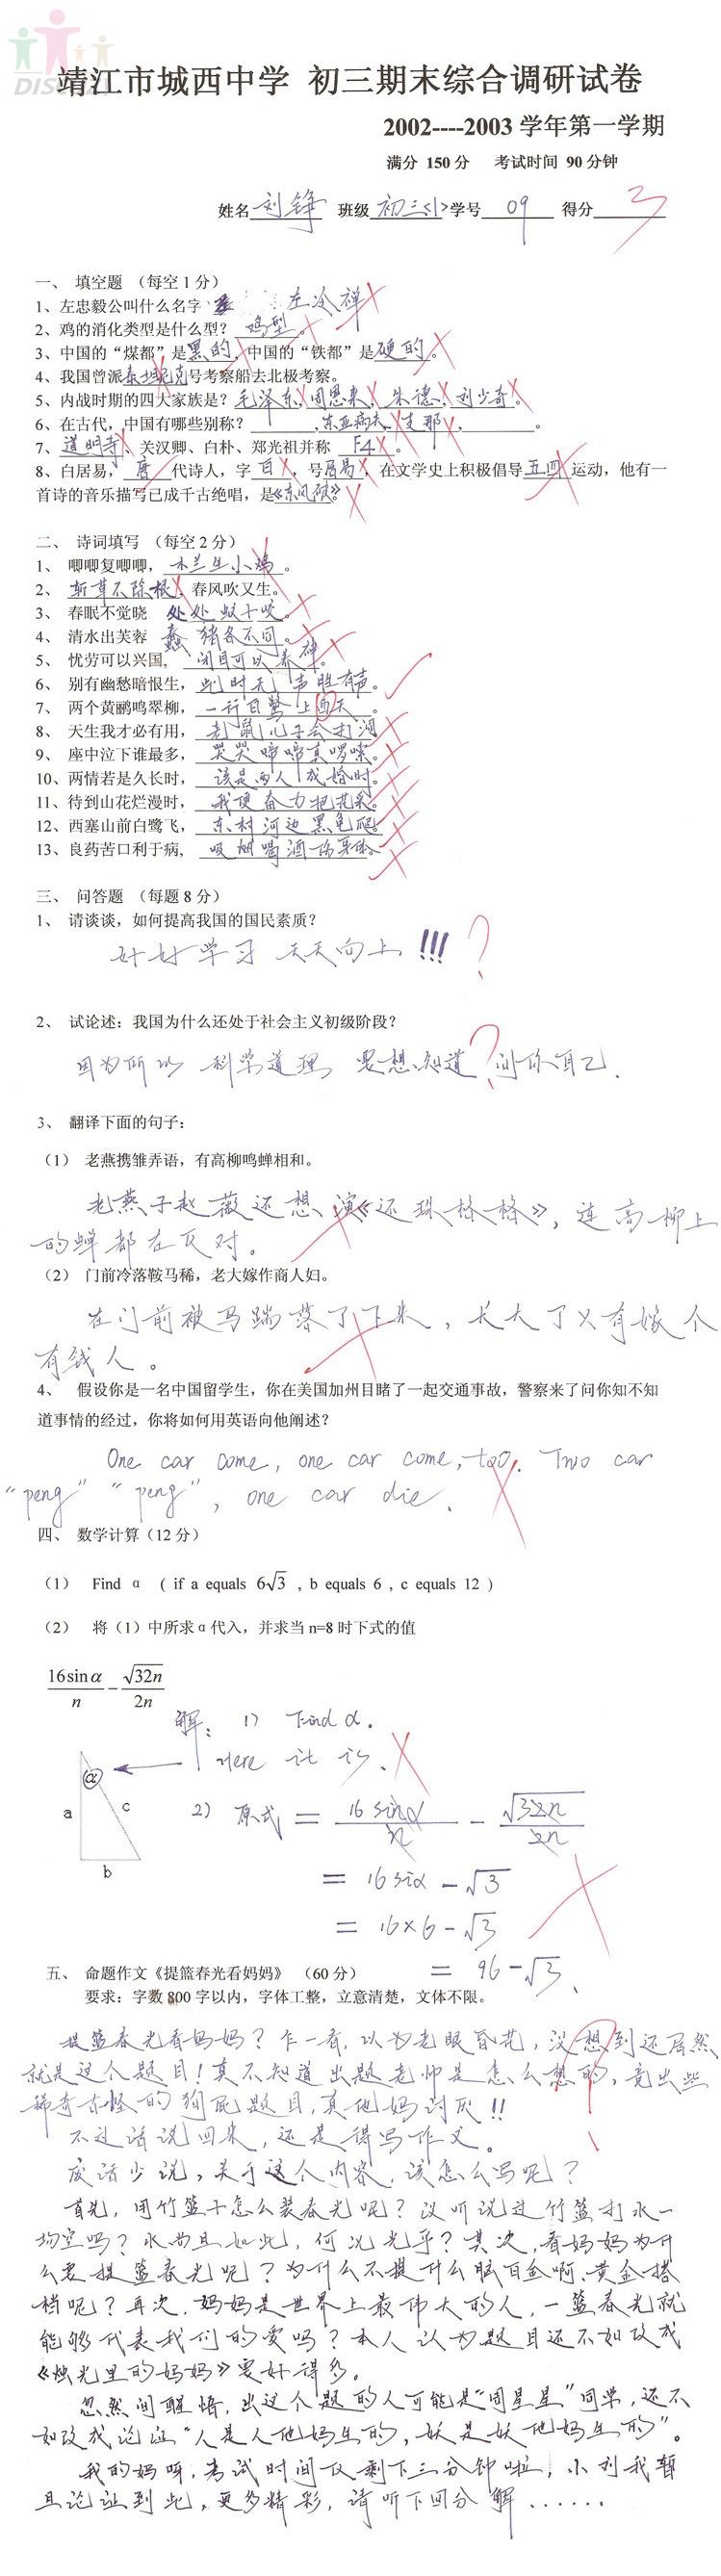 靖江市城西中学 初三期末综合调研试卷
2002----2003 学年第一学期
满分 150 分 考试时间 90 分钟
姓名 刘铮 班级 初三<1> 学号 09 得分 3
一、 填空题 （每空 1 分）
1、左忠毅公叫什么名字 左冷禅
2、鸡的消化类型是什么型？ 鸡型。
3、中国的“煤都”是黑的，中国的“铁都”是硬的。
4、我国曾派泰坦尼克号考察船去北极考察。
5、内战时期的四大家族是？毛泽东，周恩来，朱德，刘少奇。
6、在古代，中国有哪些别称？ ，东亚病夫，支那， 。
7、道明寺、关汉卿、白朴、郑光祖并称 F4 。
8、白居易， 唐 代诗人，字 白 ，号居易，在文学史上积极倡导五四运动，他有一
首诗的音乐描写已成千古绝唱，是《东风破》。
二、 诗词填写 （每空 2 分）
1、 唧唧复唧唧，木兰生小鸡。
2、 斩草不除根，春风吹又生。
3、 春眠不觉晓 处处蚊子咬。
4、 清水出芙蓉 蠢猪各不同。
5、 忧劳可以兴国， 闭目可以养神。
6、 别有幽愁暗恨生，此时无声胜有声。
7、 两个黄鹂鸣翠柳，一行白鹭上西天。
8、 天生我才必有用，老鼠儿子会打洞
9、 座中泣下谁最多，哭哭啼啼真啰嗦。
10、两情若是久长时，该是两人成婚时。
11、待到山花烂漫时，我便奋力把花采。
12、西塞山前白鹭飞，东村河边黑龟爬。
13、良药苦口利于病，吸烟喝酒伤身体。
三、 问答题 （每题 8 分）
1、 请谈谈，如何提高我国的国民素质？
好好学习 天天向上 !!! ?
2、 试论述：我国为什么还处于社会主义初级阶段？
因为所以 科学道理 要想知道 问你自己.
?
3、 翻译下面的句子：
（1） 老燕携雏弄语，有高柳鸣蝉相和。
老燕子赵薇还想演《还珠格格》，连高柳上
的蝉都在反对。
（2） 门前冷落鞍马稀，老大嫁作商人妇。
在门前被马踹落了下来，长大了只有嫁个
有钱人。
4、 假设你是一名中国留学生，你在美国加州目睹了一起交通事故，警察来了问你知不知
道事情的经过，你将如何用英语向他阐述？
One car come, one car come, too. Two car
“peng” “peng”, one car die.
四、 数学计算（12 分）
（1） Find α ( if a equals 6√3 , b equals 6 , c equals 12 )
（2） 将（1）中所求α代入，并求当 n=8 时下式的值
16sinα/n - √32n/2n
解： 1) Find α.
α Here it is.
a c b
2) 原式 = 16 sinα/n - √32n/2n
= 16 siα - √3
= 16×6 - √3
= 96 - √3.
五、 命题作文《提篮春光看妈妈》 （60 分）
要求：字数 800 字以内，字体工整，立意清楚，文体不限。
提篮春光看妈妈？乍一看，以为老眼昏花，没想到还居然
就是这个题目！真不知道出题老师是怎么想的，竟出些
稀奇古怪的狗屁题目，真他妈讨厌!!
不过话说回来，还是得写作文。
废话少说，关于这个内容，该怎么写呢？
首先，用竹篮子怎么装春光呢？没听说过竹篮打水一
场空吗？水尚且如此，何况光乎？其次，看妈妈为什
么要提篮春光呢？为什么不提什么脑白金啊、黄金搭
档呢？再次，妈妈是世界上最伟大的人，一篮春光就
能够代表我们的爱吗？本人认为题目还不如改成
《烛光里的妈妈》要好得多。
忽然间醒悟，出这个题的人可能是“周星星”同学，还不
如改成论证“人是人他妈生的，妖是妖他妈生的”。
我的妈呀，考试时间仅剩下三分钟啦，小刘我暂
且论证到此，更多精彩，请听下回分解……